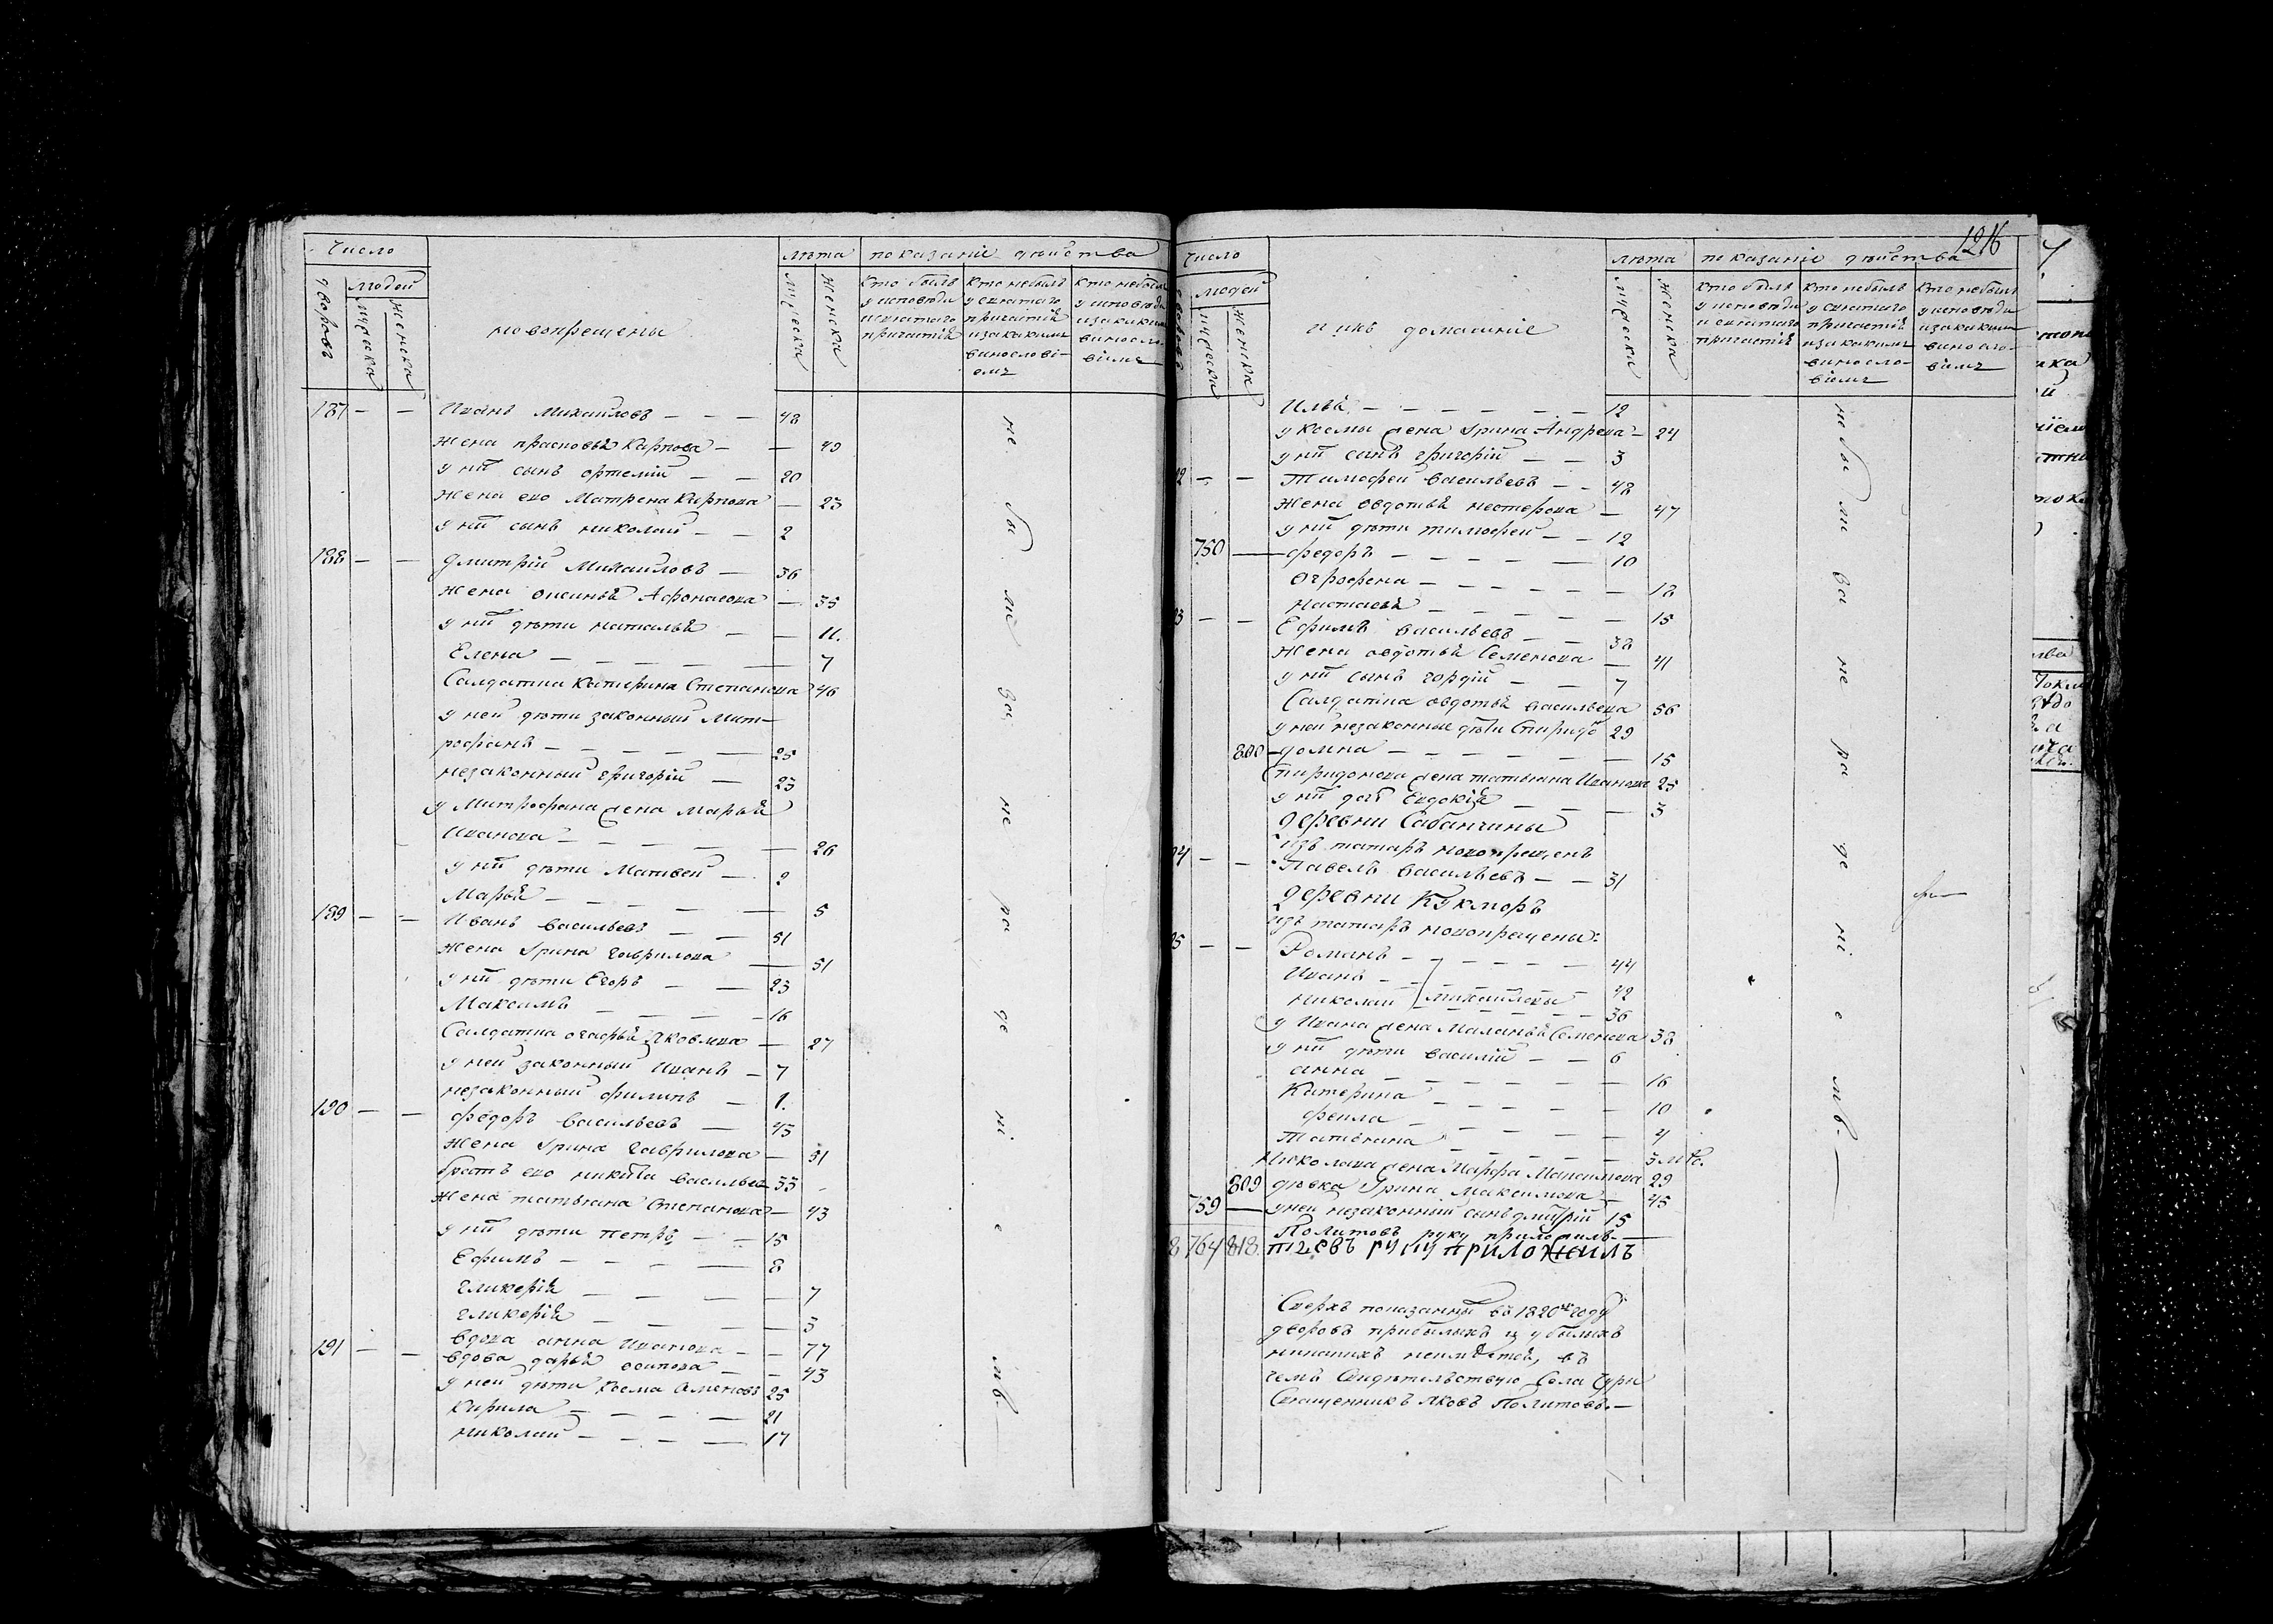 Число
людей
дворовъ
мужеска
женска
новокрещены
лѣта
мужеска
женска
показаніе дѣйства
Кто былъ у исповѣди и святаго причастія
Кто небылъ у святаго причастія и закакимъ винословіемъ
187 — — Иванъ Михаиловъ — — — 48
жена прасковья Карпова — — 49
у них сынъ ортемій — — 20
жена ево Матрена Карпова — 23
у них сынъ николай — — 2
188 — — Дмитрій Михаиловъ — 36
жена оксинья Афонасова — 35
у них дѣти наталья — — 11.
Елена — — — — — 7
Салдатка Катерина Степанова 46
у ней дѣти законный Мит-
рофанъ — — — — 25
незаконный григорій — 23
у Митрофана жена Марья
Иванова — — — — — 26
у них дѣти Матвей — 2
Марья — — — — — 5
189 — — Иванъ васильевъ — — 51
жена Ѳрина гаврилова — 51
у них дѣти Егоръ — — 23
Максимъ — — — — 16
Салдатка огафья Яковлева — 27
у ней законный Иванъ — 7
незаконный филипъ — 1.
190 — — федоръ васильевъ — 43
жена Ѳрина гаврилова — 51
братъ ево никита васильев 33
жена татьяна Степанова — 43
у них дѣти петръ — — 15
Ефимъ — — — — 8
гликерія — — — — 7
гликерія — — — — 3
191 — — вдова анна Иванова — — 77
вдова дарья осипова — — 43
у ней дѣти Козма Семеновъ 25
Кирила — — — — 21
николай — — — — 17
не бы ли за не ра де ні е мъ.
1216
Число
людей
мужеска
женска
и ихъ домашніе
лѣта
мужеска
женска
показаніе дѣйства
Кто былъ у исповѣди и святаго причастія
Кто небылъ у святаго причастія и закакимъ винословіемъ
Кто небылъ у исповѣди и закакимъ винословіемъ
Илья — — — — — — 12
у Козмы жена Ѳрина Андреева — 24
у них сынъ григорій — — 3
2 — — Тимофей васильевъ — — 48
жена овдотья нестерова — 47
у них дѣти тимофей — — 12
750 — федоръ — — — — 10
Огрофена — — — — — 18
настасья — — — — — 15
3 — — Ефимъ васильевъ — — 38
жена овдотья Семенова — 41
у них сынъ гордій — — 7
Салдатка овдотья васильева 56
у ней незаконные дѣти Спиридо 29
800 — домна — — — — — 15
Спиридонова жена татьяна Иванова 25
у них дочь Евдокія — — — 3
деревни Сабанчины
изъ татаръ новокрещенъ
4 — — Павелъ васильевъ — — 31
деревни Кукморъ
изъ татаръ новокрещены:
5 — — Романъ — — — — — 44
Иванъ — — — — — 42
николай Михаиловы — 36
у Ивана жена Маланья Семенова 38
у них дѣти василій — — 6
анна — — — — — — 16
Катерина — — — — — 10
фекла — — — — — 4
Татьяна — — — — — 3 мѣс.
Николаева жена Марфа Максимова 29
809 дѣвка Ѳрина Максимова — 45
759 — у ней незаконный сынъ дмитрій 15
Политовъ руку приложилъ. —
8 764 818. руку приложилъ
не бы ли за не ра де ні е мъ. —
Сверхъ показанныхъ въ 1820мъ году
дворовъ прибылыхъ и убылыхъ
никакихъ неимѣется, въ
чемъ Свидѣтельствую Села Сури
Священникъ Яковъ Политовъ. —